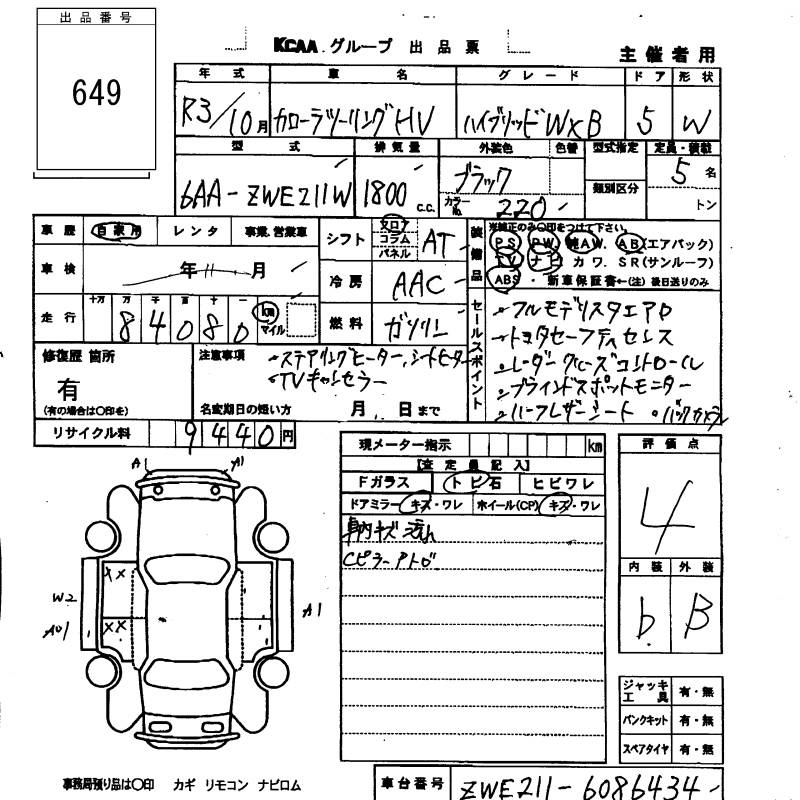 出品番号
649
KCAA グループ 出品票
主催者用
年式 車名 グレード ドア 形状
R3/10月 カローラツーリングHV ハイブリッドWXB 5 W
型式 排気量 外装色 色替 型式指定 定員・積載
6AA-ZWE211W 1800 c.c. ブラック カラーNo. 220 類別区分 5名 トン
車歴 自家用 レンタ 事業、営業車
車検 年 11 月
走行 十万 万 千 百 十 一 km マイル
8 4 0 8 0
シフト フロア コラム パネル AT
冷房 AAC
燃料 ガソリン
装備品 ※純正のみ○印をつけて下さい。
PS PW 純AW. AB(エアバック)
TV ナビ カワ. SR(サンルーフ)
ABS ・ 新車保証書←(注) 後日送りのみ
セールスポイント
フルモデリスタエアロ
トヨタセーフティセンス
レーダークルーズコントロール
ブラインドスポットモニター
ハーフレザーシート ・バックカメラ
修復歴 箇所
有
(有の場合は○印を)
注意事項
ステアリングヒーター、シートヒーター
TVキャンセラー
名変期日の短い方 月 日まで
リサイクル料 9440円
現メーター指示 km
【査定員記入】
Fガラス トビ石 ヒビワレ
ドアミラー キズ・ワレ ホイール(CP) キズ・ワレ
車内キズ 汚れ
Cピラーアトg
評価点
4
内装 外装
b B
A1 A1
W2
A1
XX
XX
ジャッキ 工具 有・無
パンクキット 有・無
スペアタイヤ 有・無
事務局預り品は○印 カギ リモコン ナビロム
車台番号 ZWE211-6086434